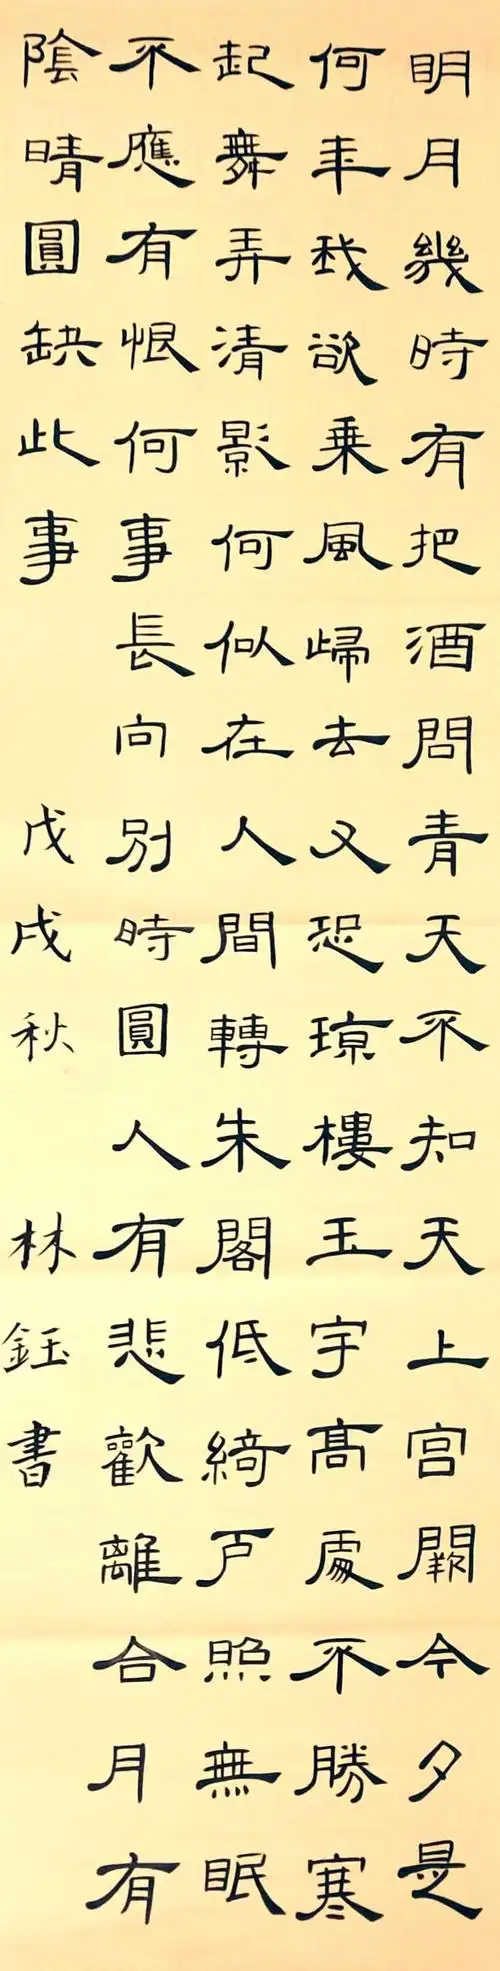 明月幾時有把酒問青天不知天上宮闕今夕是
何年我欲乘風歸去又恐瓊樓玉宇高處不勝寒
起舞弄清影何似在人間轉朱閣低綺戶照無眠
不應有恨何事長向別時圓人有悲歡離合月有
陰晴圓缺此事
戊戌秋 林鈺書